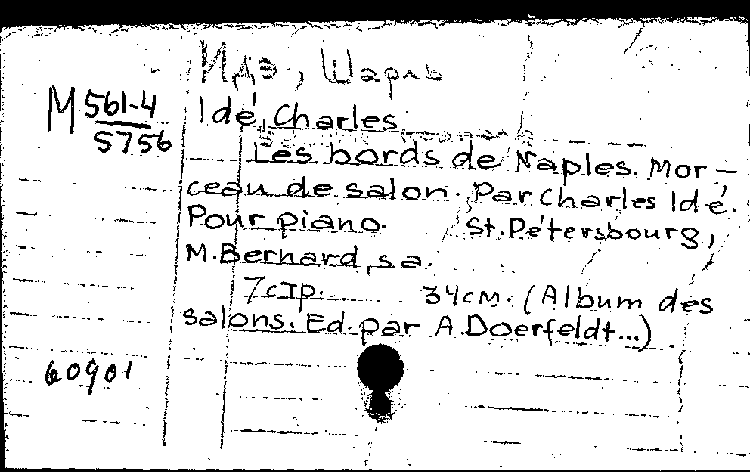 Идэ, Шарль
М 561-4
5756
Idé, Charles
Les bords de Naples. Mor-
ceau de salon. Par Charles Idé.
Pour piano. St. Pétersbourg,
M. Bernard, s.a.
7 стр. 34 см. (Album des
salons. Ed. par A. Doerfeldt...).
60901